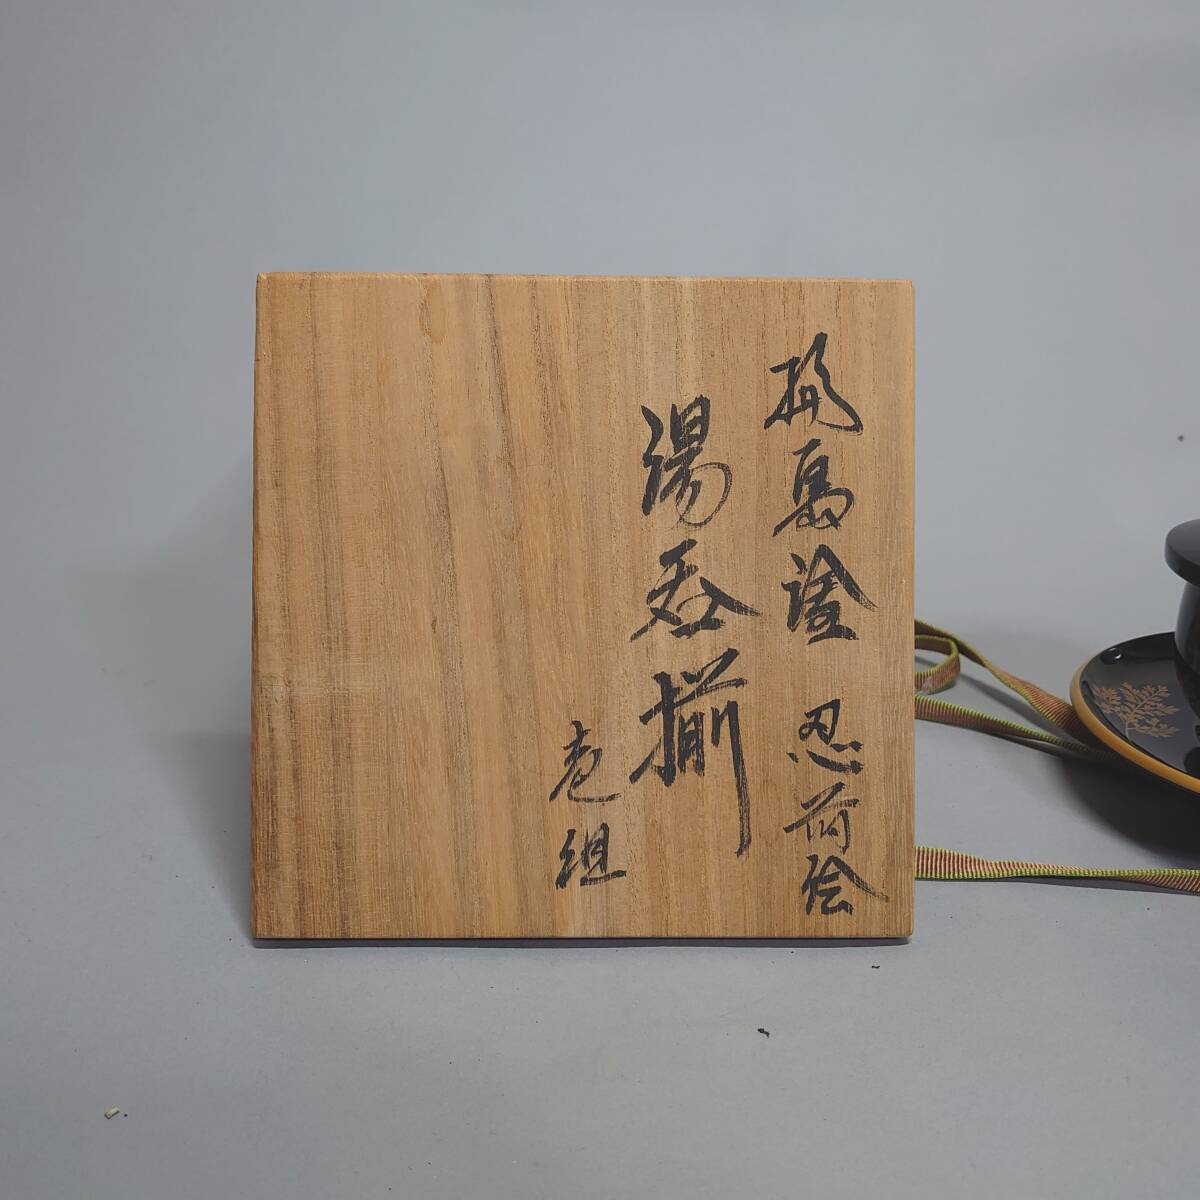 島塗 忍蒔絵
湯呑揃
壱組